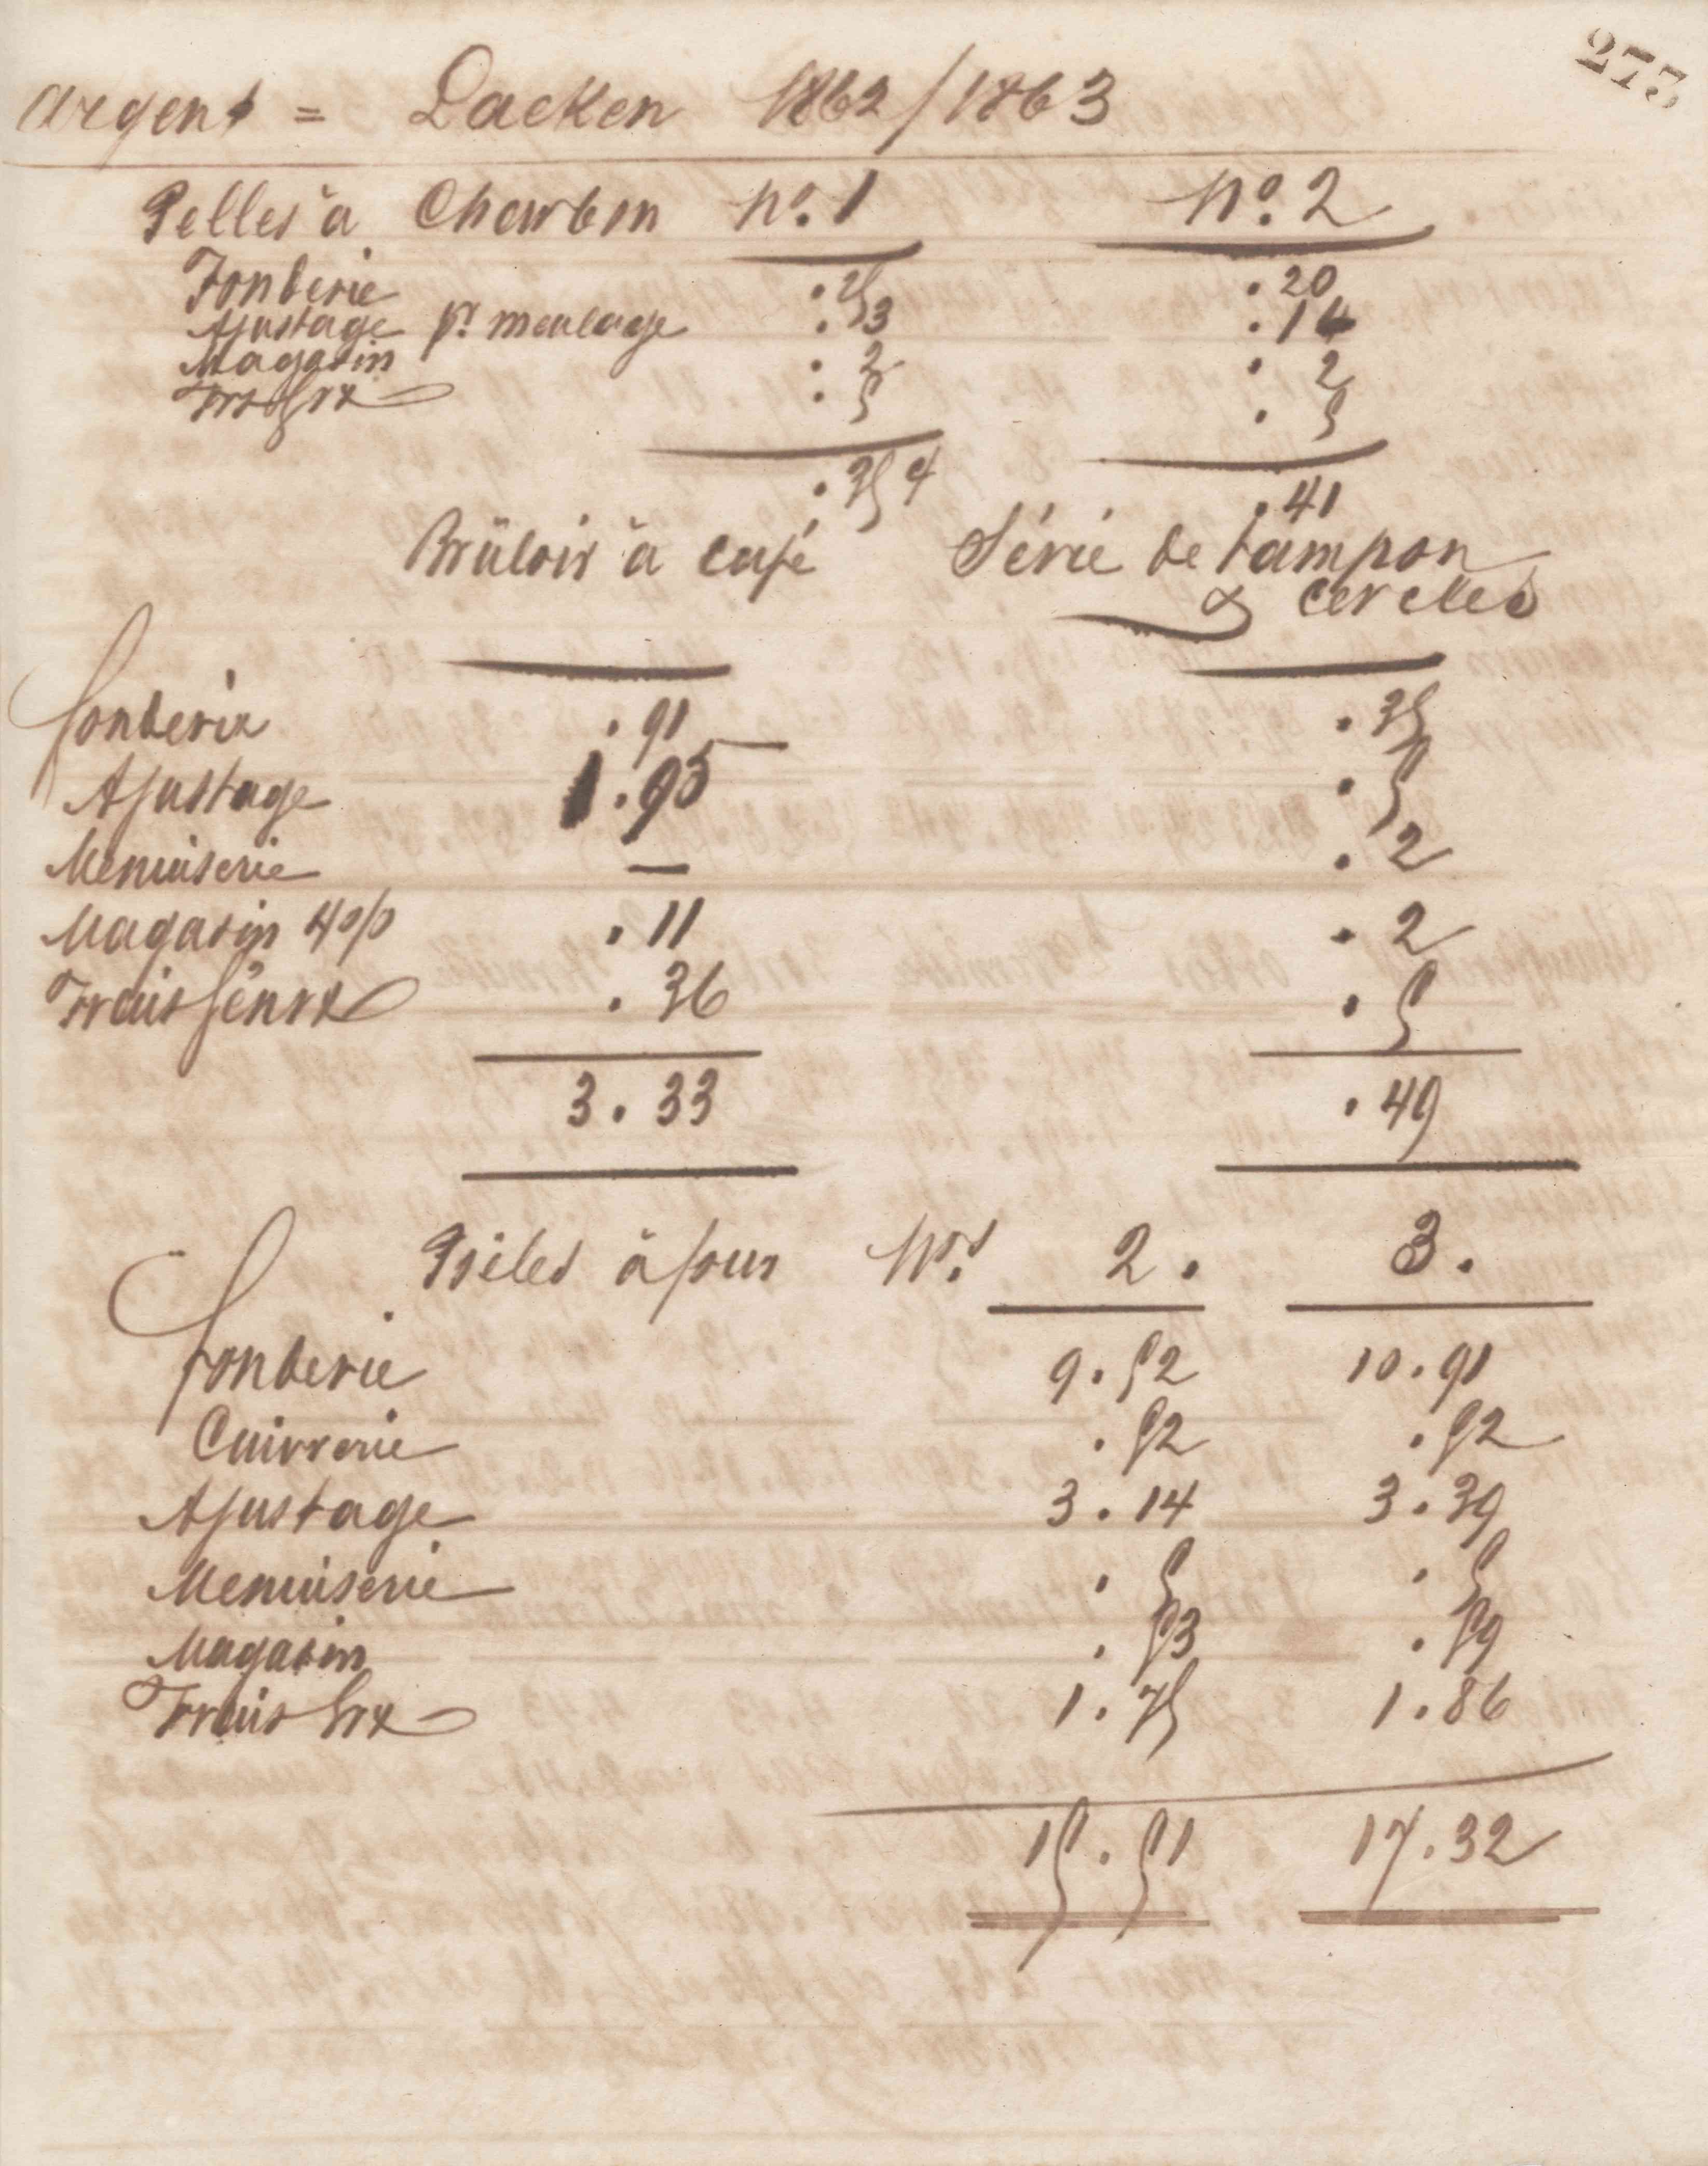 273
Argent = Laeken 1862/1863
Pelles à Charbon No. 1 No. 2
Fonderie .25 .20
Ajustage pr meulage .3 .14
Magasin . 2 . 2
Frs Grx . 5 . 5
.35 4 .41
Brûloir à café Série de tampon
& cercles
Fonderie .91 .35
Ajustage 1.95 . 5
Menuiserie — . 2
Magasin 4 0/0 . 11 . 2
Frais Génrx . 36 . 5
3.33 .49
Poêles à four Nos. 2. 3.
Fonderie 9.52 10.91
Cuivrerie .52 .52
Ajustage 3.14 3.39
Menuiserie . 5 . 5
Magasin . 53 . 59
Frais Grx 1.75 1.86
15.51 17.32